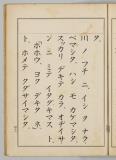 タ。
川 ノ フチ ニ、イシ ヲ ナラ
ベマシタ。ハシ モ カケマシタ。
スッカリ デキテ カラ、オヂイサ
ンニ ミテ イタダキマスト、
「ホホウ、ヨク デキタ ネ。」
ト、ホメテ クダサイマシタ。